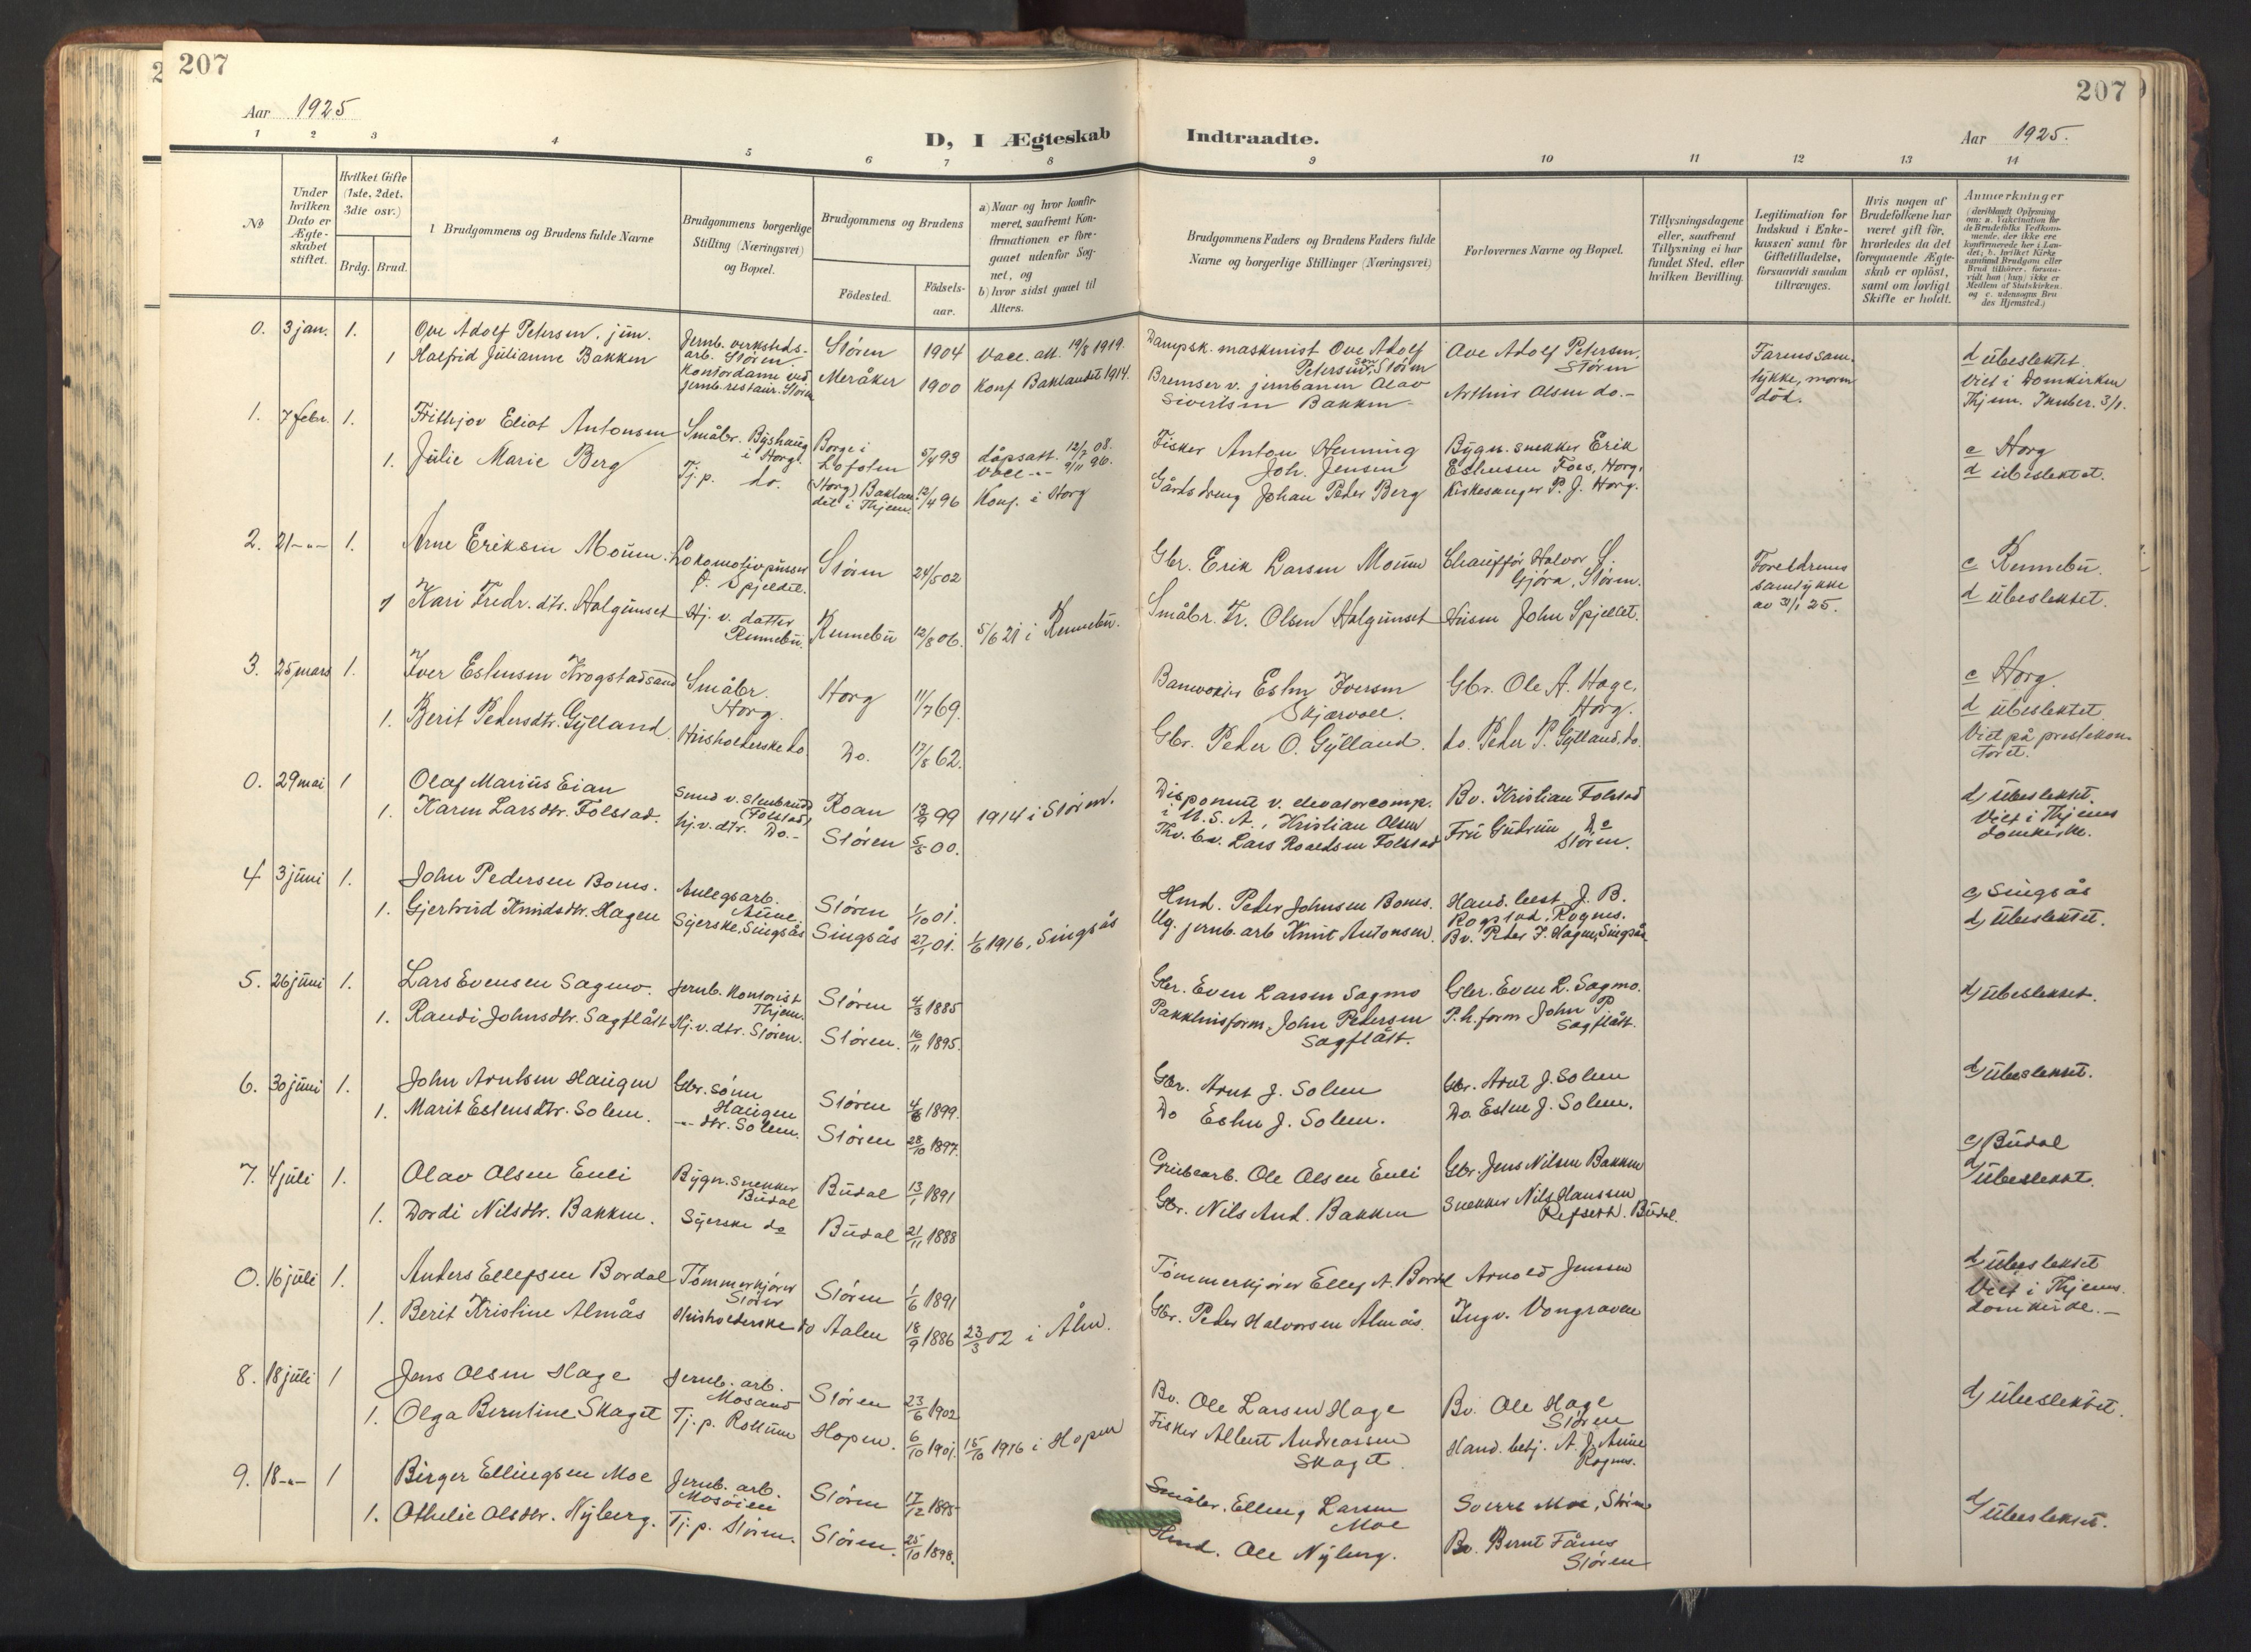 207
207
Aar 1925
D, I Ægteskab Indtraadte.
Aar 1925.
1 2 3 4 5 6 7 8 9 10 11 12 13 14
No
Under hvilken Dato er Ægteskabet stiftet.
Hvilket Gifte (1ste, 2det, 3die osv.)
Brdg. Brud.
1 Brudgommens og Brudens fulde Navne
Brudgommens borgerlige Stilling (Næringsvei) og Bopæl.
Brudgommens og Brudens
Födested.
Födsels-aar.
a) Naar og hvor konfirmeret, saafremt Konfirmationen er foregaaet udenfor Sognet, og
b) hvor sidst gaaet til Alters.
Brudgommens Faders og Brudens Faders fulde Navne og borgerlige Stillinger (Næringsvei)
Forlovernes Navne og Bopæl.
Tillysningsdagene eller, saafremt Tillysning ei har fundet Sted, efter hvilken Bevilling.
Legitimation for Indskud i Enkekassen samt for Giftetilladelse, forsaavidt saadan tiltrænges.
Hvis nogen af Brudefolkene har været gift för, hvorledes da det foregaaende Ægteskab er oplöst, samt om lovligt Skifte er holdt.
Anmærkninger
(deriblandt Oplysning om: a. Vakcination for de Brudefolks Vedkommende, der ikke ere konfirmerede her i Landet; b. hvilket Kirkesamfund Brudgom eller Brud tilhörer, forsaavidt han (hun) ikke er Medlem af Statskirken, og c. udensogns Brudes Hjemsted.)
0. 3 jan. 1. Ove Adolf Petersen, jun. Jernb. verksteds-arb. Støren Støren 1904 Vacc. att. 19/8 1919. Dampsk. maskinist Ove Adolf Petersen, Støren Ove Adolf Petersen, Støren Farens samtykke, moren död. d ubeslektet
1 Halfrid Julianne Bakken Kontordame ved jernb. restaur. Støren Meråker 1900 Konf Baklandet 1914. Bremser v. jernbanen Olav Sivertsen Bakken Arthur Olsen do.- Viet i Domkirken Thjem. 3/1.
1. 7 febr. 1. Frithjov Eliot Antonsen Småbr. Byshaug i Horg. Borge i Lofoten 5/4 93 dåpsatt. 12/7 08. Vacc -"- 9/11 96. Fisker Anton Henning Joh. Jensen Bygn. snekker Erik Estensen Foss, Horg, c Horg
1. Julie Marie Berg Tj. p. do. (Horg) Baklandet i Thjem. 12/4 96 Konf. i Horg Gårdsdreng Johan Peder Berg Kirkesanger P. J. Horg. d ubeslektet.
2. 21 -"- 1. Arne Eriksen Mouen Lokomotivpusser Støren 24/5 02 Gbr. Erik Larsen Mouen Chauffør Halvor Gjøra, Støren. Foreldrenes samtykke av 31/1 25. c Rennebu.
1 Kari Fredr. dtr. Halgunset Hj. v. datter Rennebu. Rennebu 12/8 06. 5/6 21 i Rennebu. Småbr. Fr. Olsen Halgunset Husm John Spjeldet. d ubeslektet.
3. 25 mars 1. Iver Estensen Krogstadsand Småbr. Horg. Horg 11/7 69. Banevokter Esten Iversen Skjærvoll. Gbr. Ole A. Hage, Horg. c Horg.
1. Berit Pedersdtr. Gylland. Husholderske do. Do. 17/8 62. Gbr. Peder O. Gylland. do. Peder P. Gylland, do. d ubeslektet Viet på prestekontoret.
0. 29 mai 1 Olaf Marius Eian Smed v. stenbrudd (Folstad) Roan 13/9 99 1914 i Støren. Disponent v. elevatorcomp. i U.S.A., Kristian Olsen Bv. Kristian Folstad d, ubeslektet.
1. Karen Larsdtr. Folstad. hj. v. dtr. Do.- Støren 5/5 00. Lars Roaldsen Folstad Fru Gudrun do Støren. Viet i Thjems domkirke.
4 3 juni 1. John Pedersen Bones. Anlegsarb. Aune Støren 1/10 01. Hmd. Peder Johnsen Bones. J. B. Rogstad, Rognes. c, Singsås
1. Gjertrud Knudsdtr. Hagen Syerske, Singsås Singsås 27/1 01. 1/6 1916, Singsås Ug. jernb. arb Knut Antonsen Bv. Peder J. Hagen, Singsås d, ubeslektet.
5. 26 juni 1. Lars Evensen Sagmo. Jernb. kontorist Thjem. Støren 4/3 1885 Gbr. Even Larsen Sagmo Gbr. Even L. Sagmo. d, ubeslektet.
1. Randi Johnsdtr. Sagflått Hj. v. dtr. Støren. Støren. 16/11 1895. Pakkhusform. John Pedersen Sagflått. P.h. form John P Sagflått.
6. 30 juni 1. John Arntsen Haugen Gbr. sønn Haugen Støren 4/8 1899. Gbr. Arnt J. Solem Gbr. Arnt J. Solem d, ubeslektet.
1. Marit Estensdtr. Solem. -"- dtr. Solem. Støren 28/10 1897. Do Esten J. Solem. Do. Esten J. Solem.
7. 4 juli 1. Olav Olsen Enli Bygn. snekker Budal Budal 13/1 1891 Grubearb. Ole Olsen Enli Gbr. Jens Nilsen Bakken c, Budal
1. Dordi Nilsdtr. Bakken. Syerske do Budal 21/11 1888 Gbr. Nils And. Bakken Snekker Nils Hanssen Refseth. Budal. d, ubeslektet.
0. 16 juli 1. Anders Ellefsen Bordal Tømmerkjører Støren Støren 1/6 1891 Tømmerkjører Ellef A. Bordal Arnold Jenssen d, ubeslektet
1. Berit Kristine Almås Husholderske do Aalen 18/9 1886 23/3 02 i Ålen. Gbr. Peder Halvorsen Almås. Ingv. Vongraven Viet i Thjems. domkirke.-
8. 18 juli 1 Jens Olsen Hage Jernb. arb. Mosand Støren 23/6 1902 Bv. Ole Larsen Hage Bv. Ole Hage Støren d, ubeslektet.
1. Olga Berntine Skaget Tj. p. Rollum Hopen. 6/10 1901. 15/10 1916 i Hopen Fisker Albert Andreassen Skaget. Hand. betj. A. J. Aune Rognes.
9. 18 -"- 1 Birger Ellingsen Moe Jernb. arb. Mosøien Støren 17/12 1895 Småbr. Elling Larsen Moe Sverre Moe, Støren d, ubeslektet.
1. Othelie Olsdtr. Nyberg. Tj. p. Støren. Støren. 25/10 1898. Hmd. Ole Nyberg. Bv. Bernt Fånes Støren